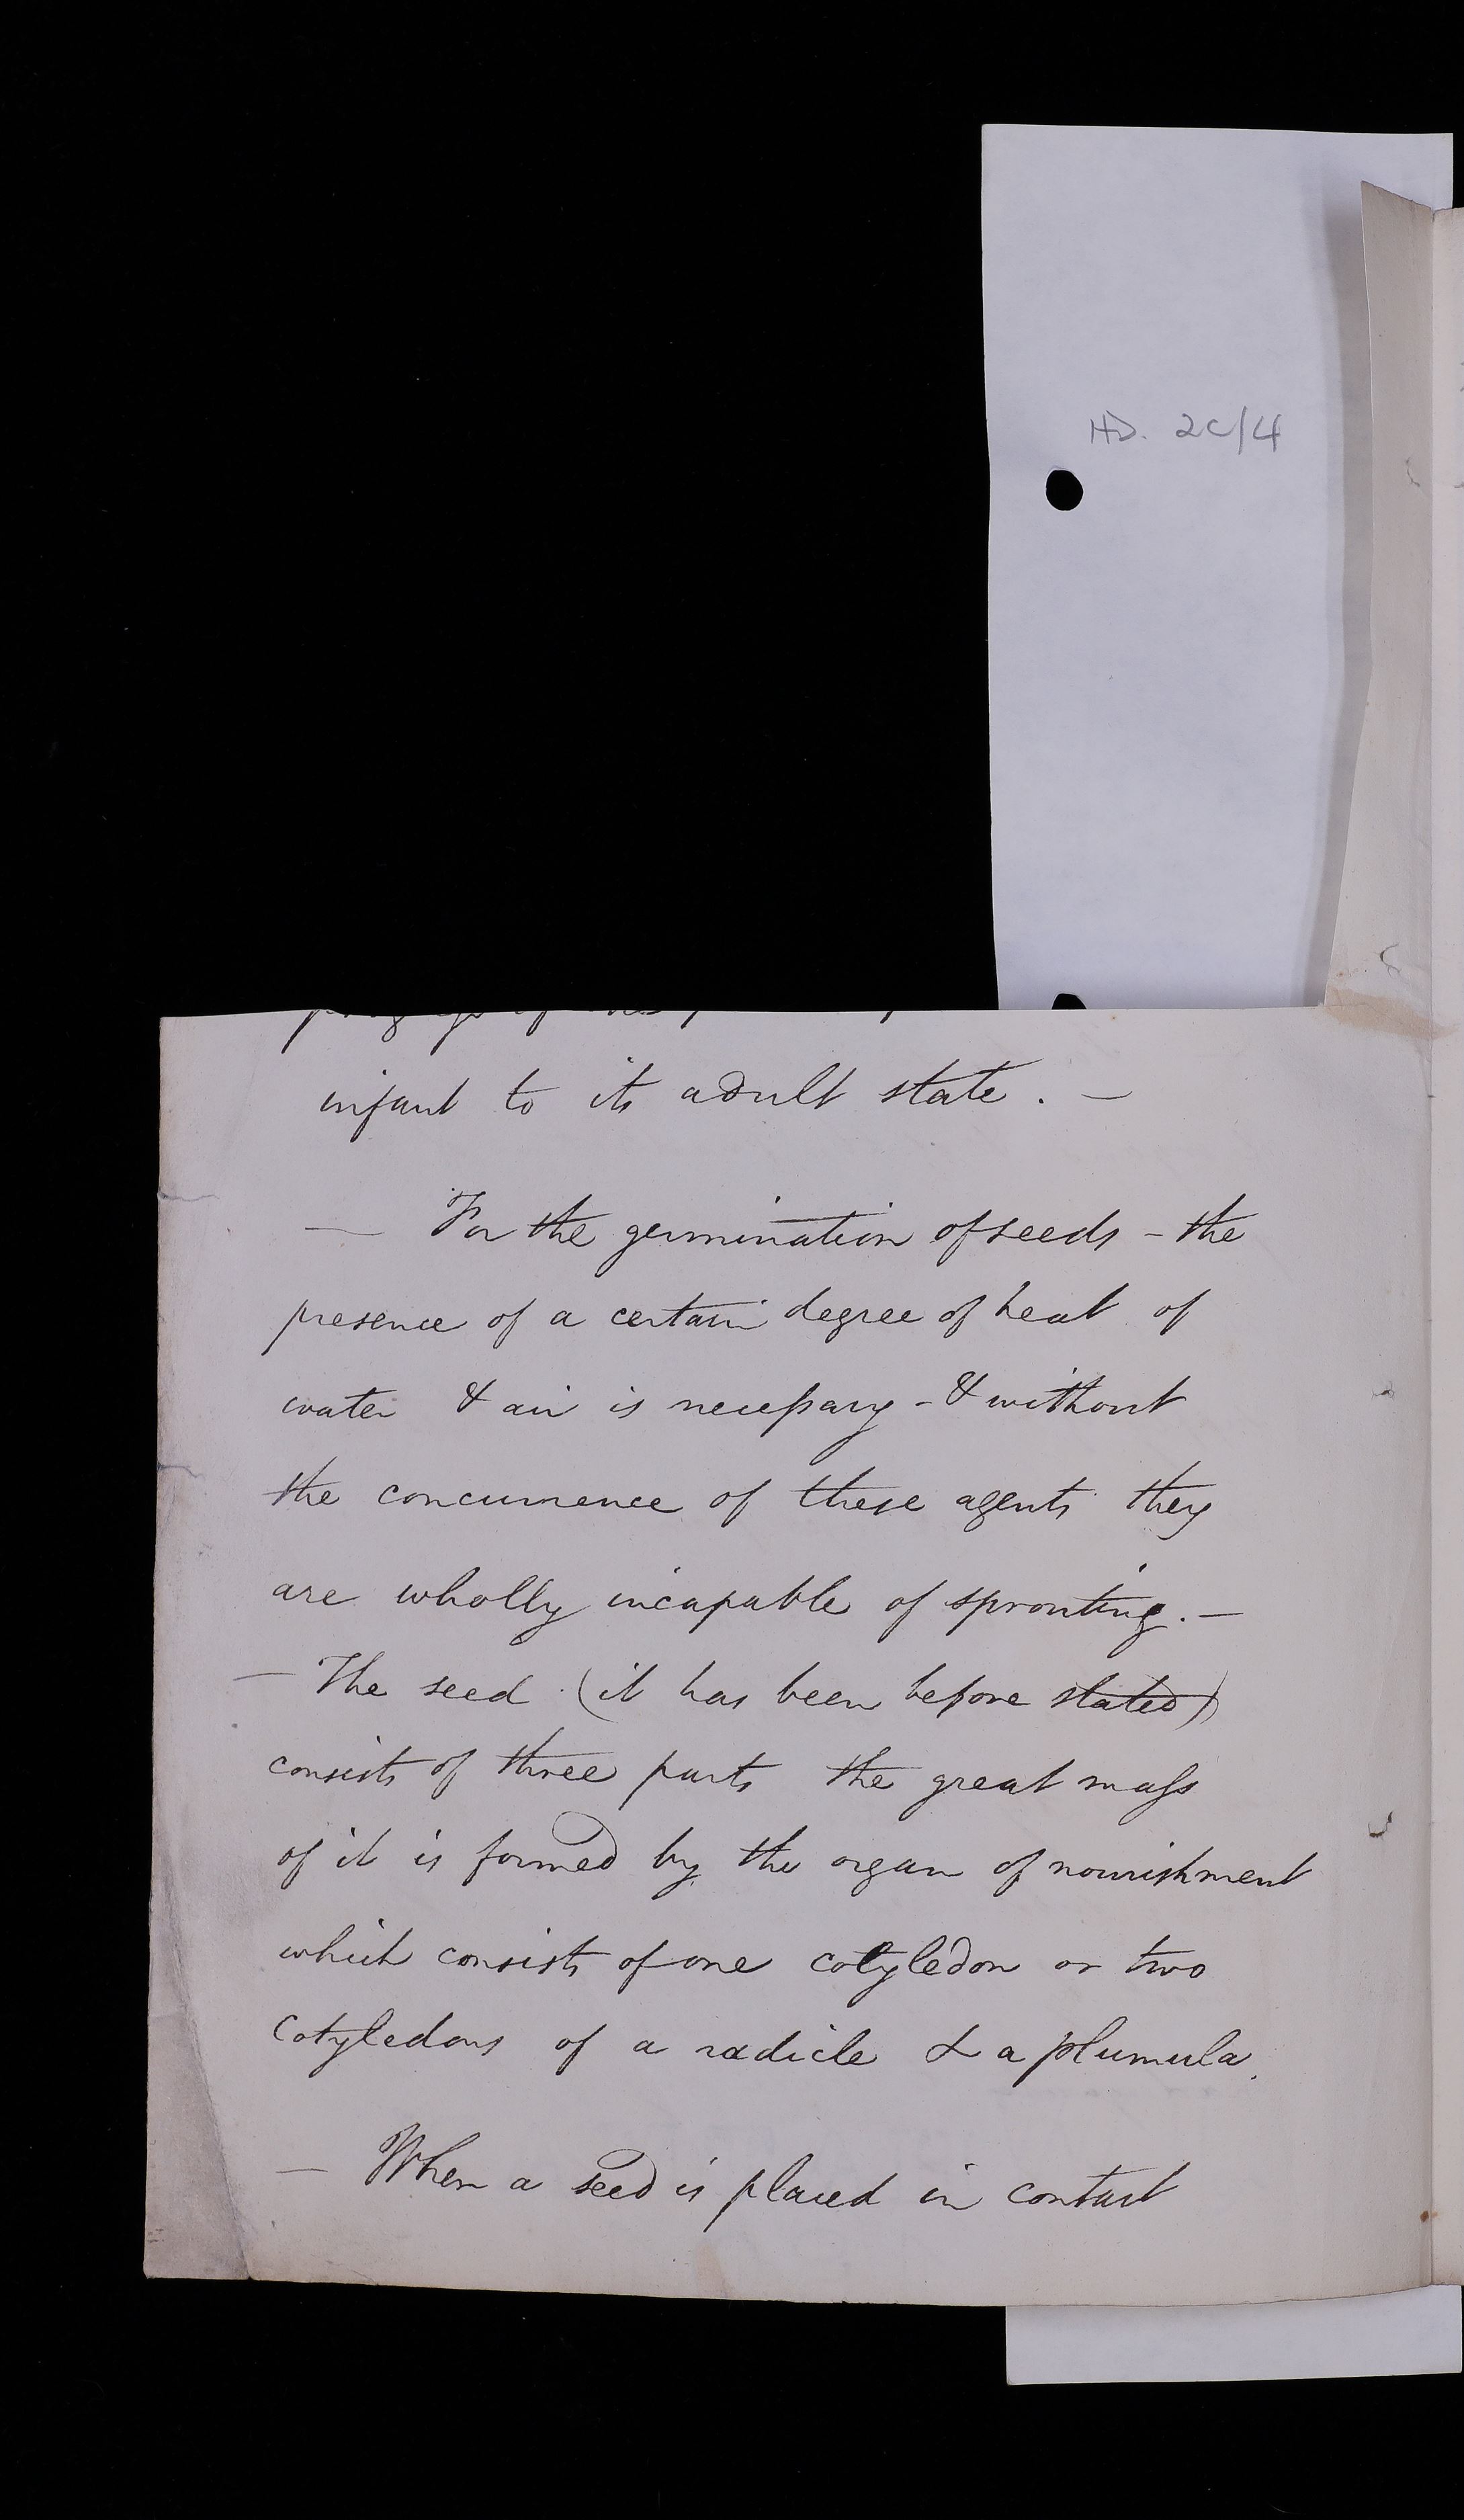 HD. 2C/4
infant to its adult state. —
— For the germination of seeds - the
presence of a certain degree of heat of
water & air is necessary - & without
the concurrence of these agents they
are wholly incapable of sprouting. —
— The seed (it has been before stated)
consists of three parts the great mass
of it is formed by the organ of nourishment
which consists of one cotyledon or two
cotyledons of a radicle & a plumula.
— When a seed is placed in contact